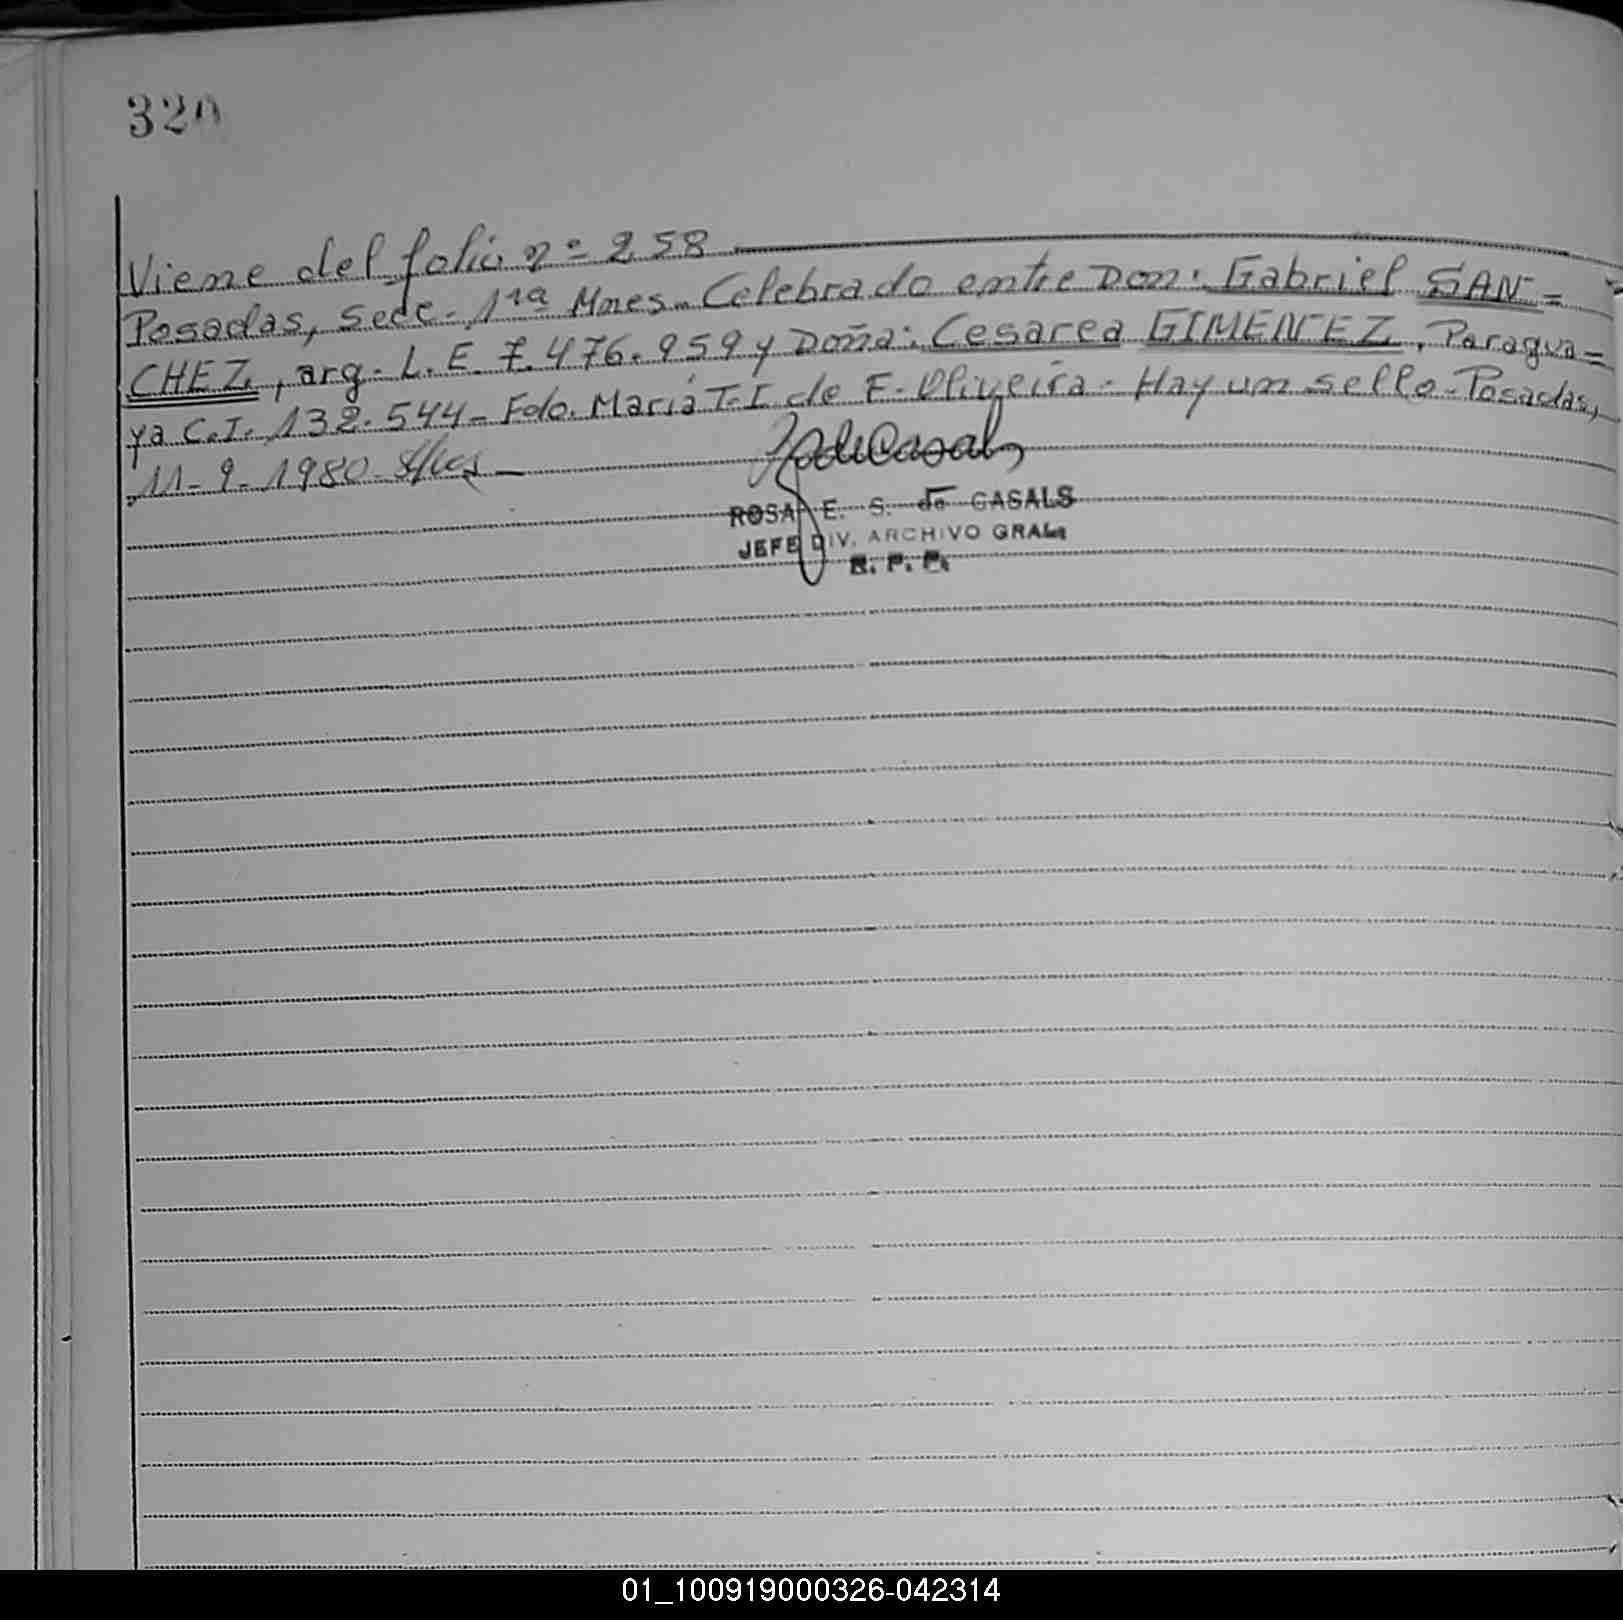 320
Viene del folio nº 258
Posadas, Sede. 11ª Mnes. Celebrado entre Don: Gabriel SAN=
CHEZ, arg. L. E. 7.476.959 y Doña: Cesarea GIMENEZ, Paragua=
ya C.I. 132.544 - Fdo. María T. I de F. Oliveira - Hay un sello - Posadas,
11-9-1980.
ROSA E. S. de CASALS
JEFE DIV. ARCHIVO GRAL.
R. P. P.
01_100919000326-042314